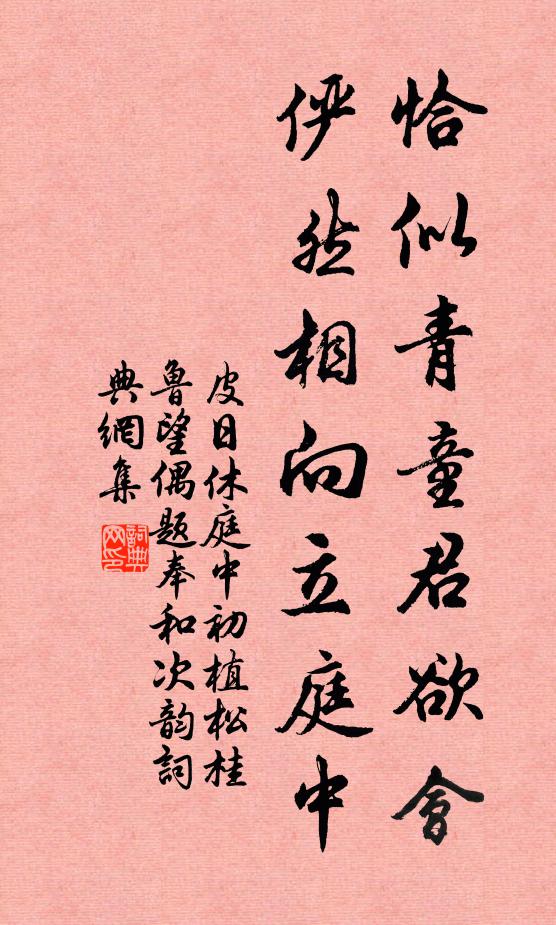 恰似青童君欲會
俨然相向立庭中
皮日休庭中初植松桂
魯望偶題奉和次韵詞
典網集
詞典
网印